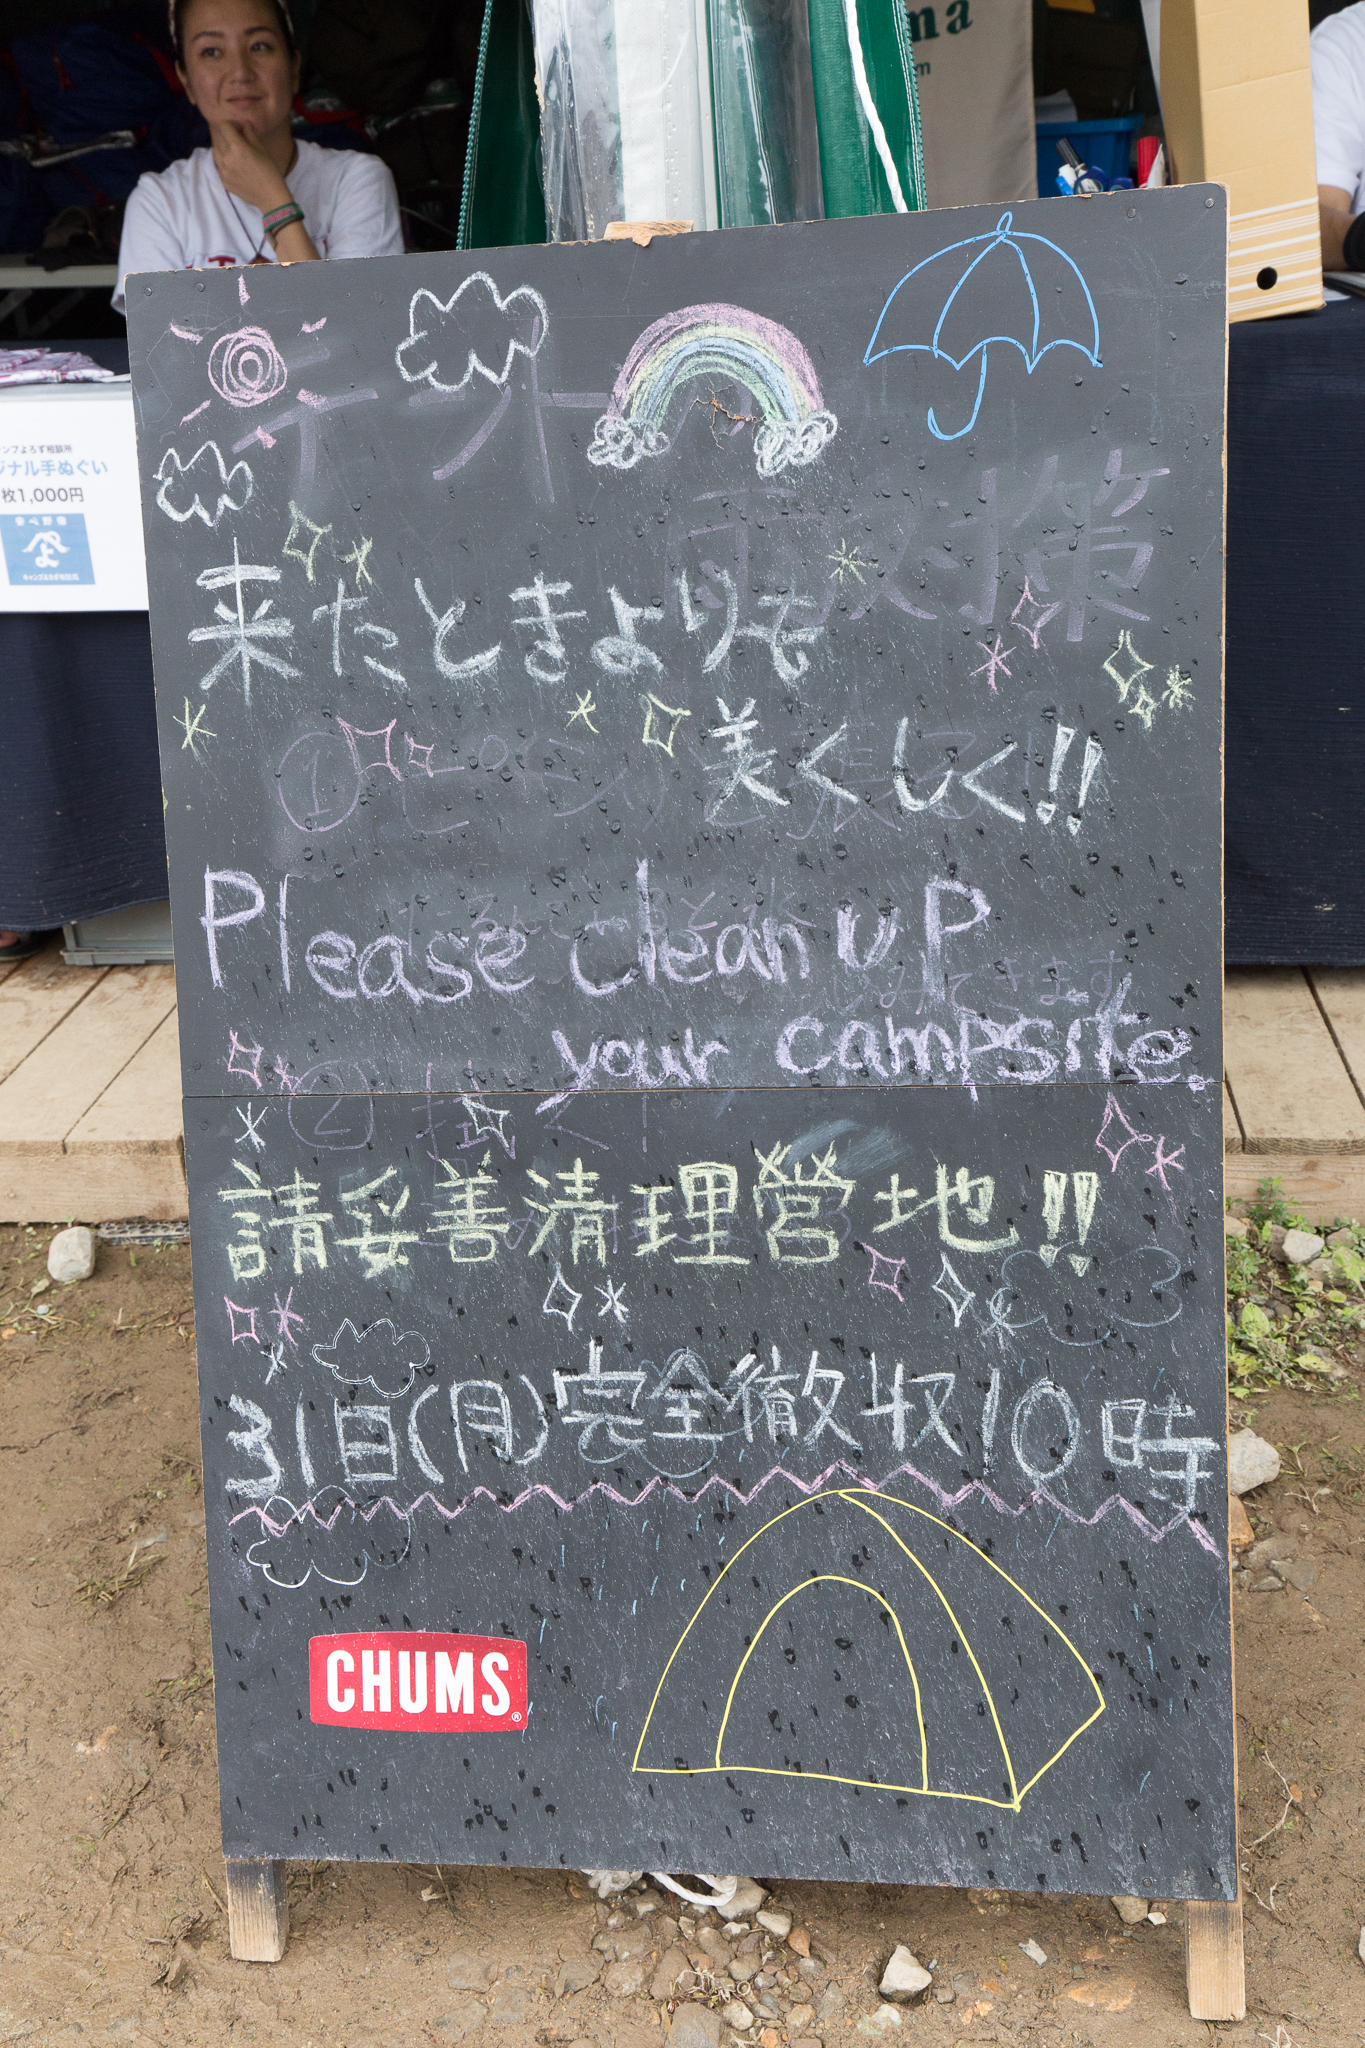 ma
m
ンプよろず相談所
ジナル手ぬぐい
枚1,000円
テント
雨対策
来たときよりも
美くしく!!
Please clean up
your campsite.
請妥善清理營地!!
31日(月)完全徹収10時
CHUMS